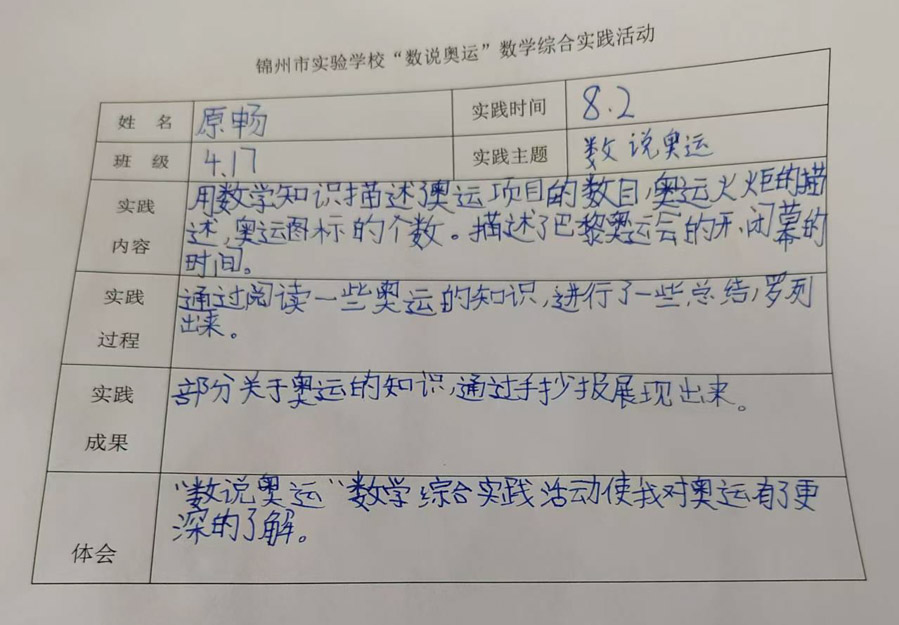 锦州市实验学校“数说奥运”数学综合实践活动
姓 名 原畅 实践时间 8.2
班 级 4.17 实践主题 数说奥运
实践
内容
用数学知识描述了奥运项目的数目,奥运火炬的描
述,奥运图标的个数。描述了巴黎奥运会的开、闭幕的
时间。
实践
过程
通过阅读一些奥运的知识,进行了一些总结,罗列
出来。
实践
成果
部分关于奥运的知识,通过手抄报展现出来。
体会
“数说奥运”数学综合实践活动使我对奥运有了更
深的了解。